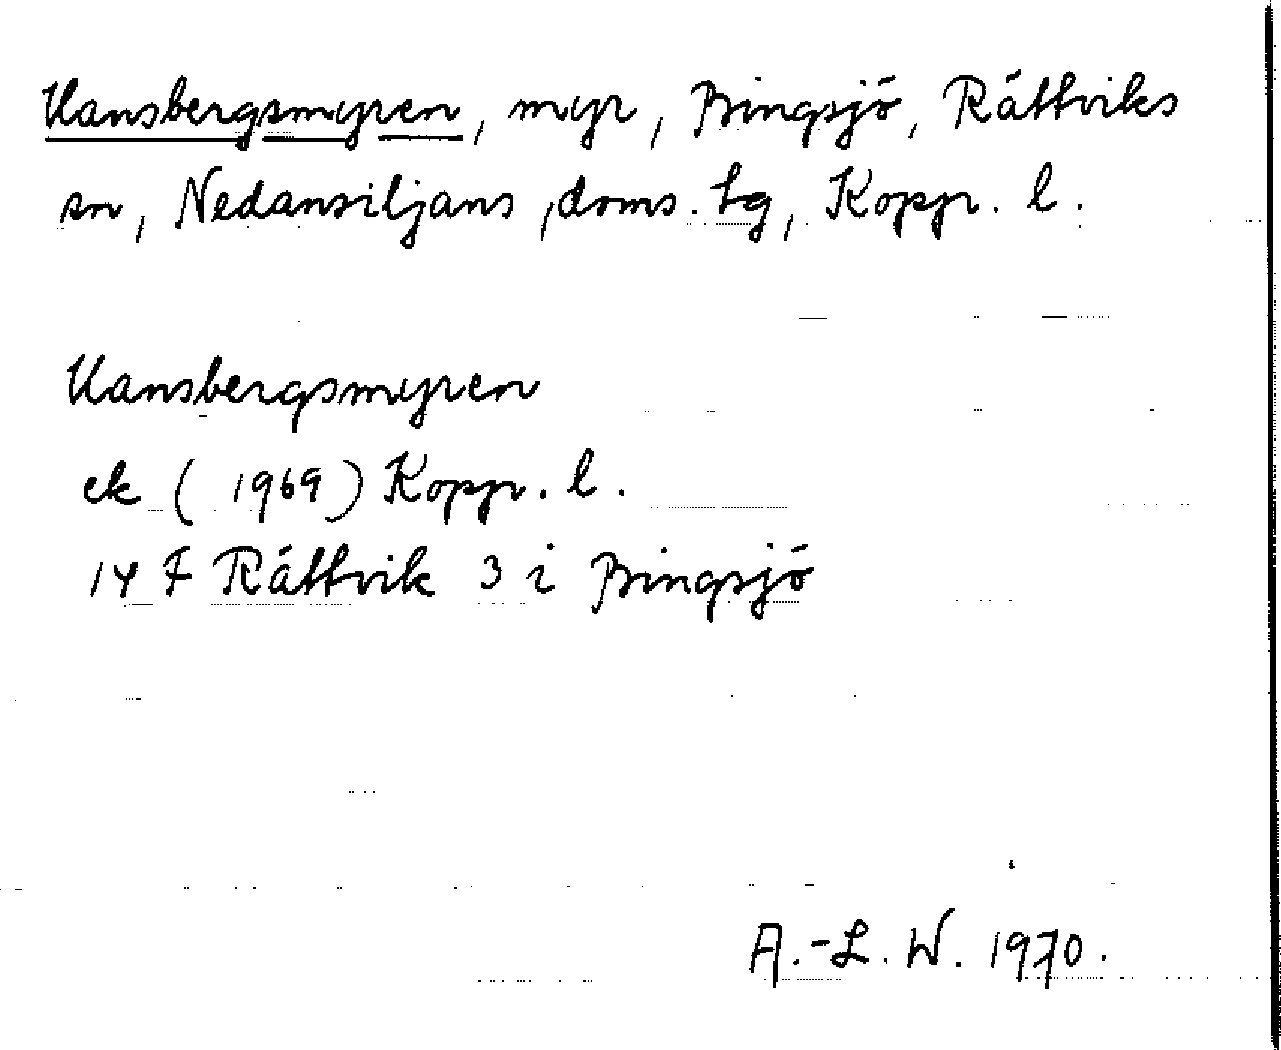 Hansbergsmyren, myr, Bingsjö, Rättviks
sn, Nedansiljans doms. tg, Koppr. l.
Hansbergsmyren
ek (1969) Koppr. l.
14 F Rättvik 3 i Bingsjö
A.-L. W. 1970.